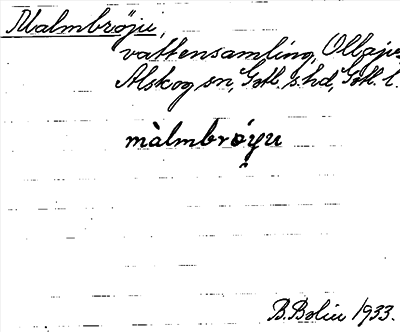 Malmbröju,
vattensamling, Ollajvs
Alskog sn, Gotl. s. hd, Gotl. l.
màlmbrǫ́yu
B. Bolin 1933.